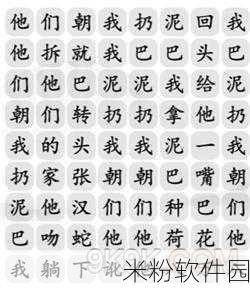 他们朝我扔泥回我
他拆就我巴巴头巴
们他巴泥泥我给泥
朝们转扔扔拿他扔
我的头我我泥一我
扔家张朝朝巴嘴朝
泥他汉们们种巴们
巴吻蛇他他荷花他
我躺下
米粉软件园